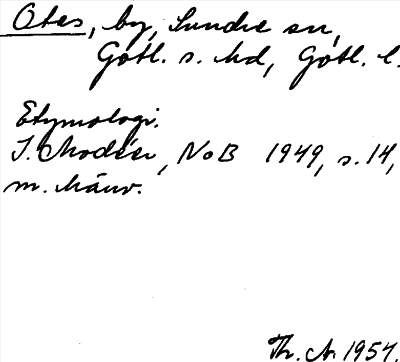 Otes, by, Sundre sn,
Gotl. s. hd, Gotl. l.
Etymologi.
I. Modéer, NoB 1949, s. 14,
m. hänv.
Th. A. 1954.